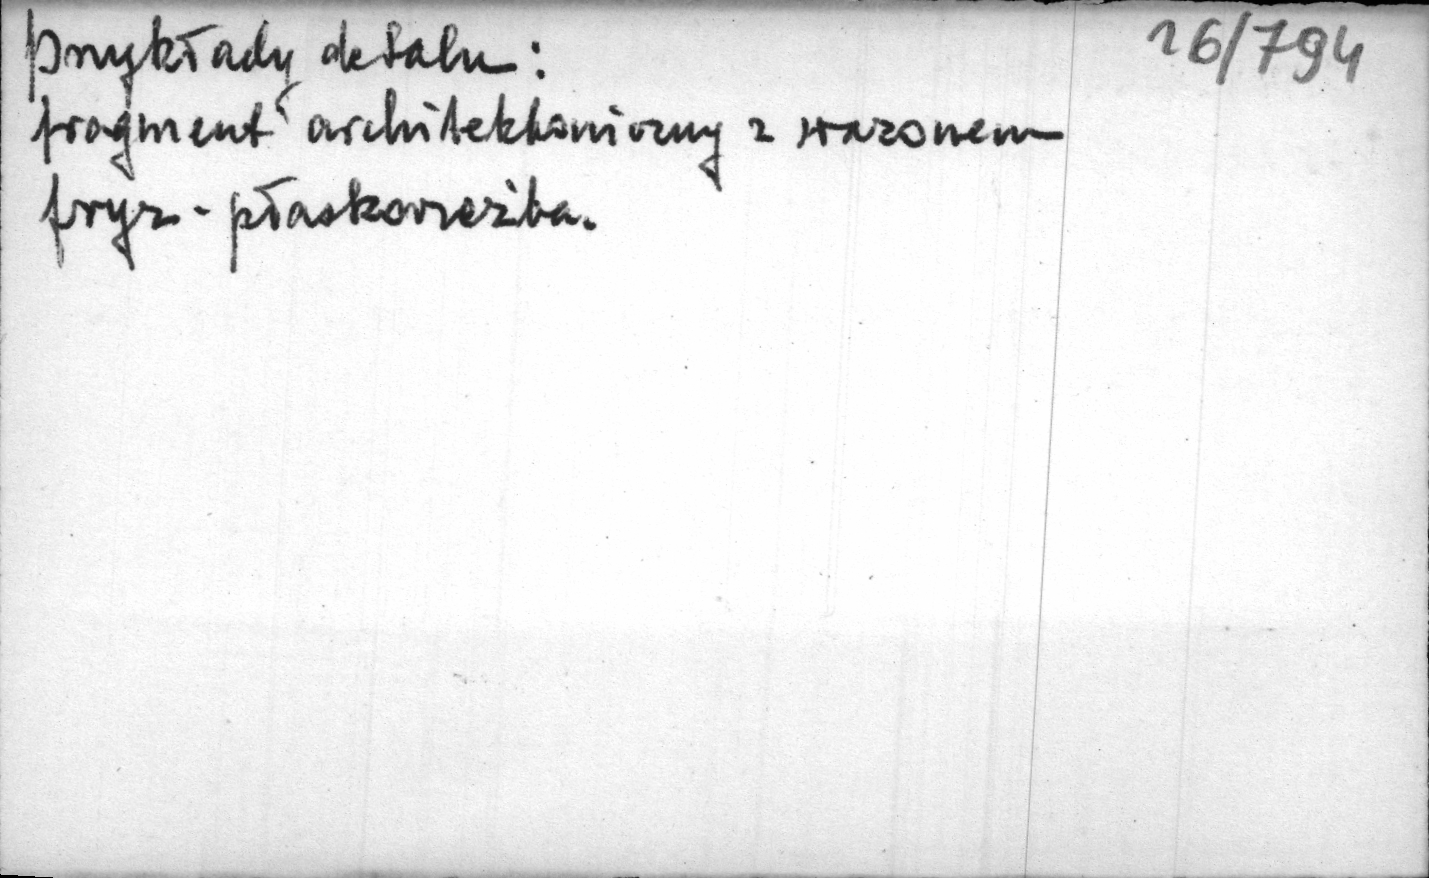 16/794
przykłady detalu:
fragment architektoniczny z wazonem
fryz - płaskorzeźba.